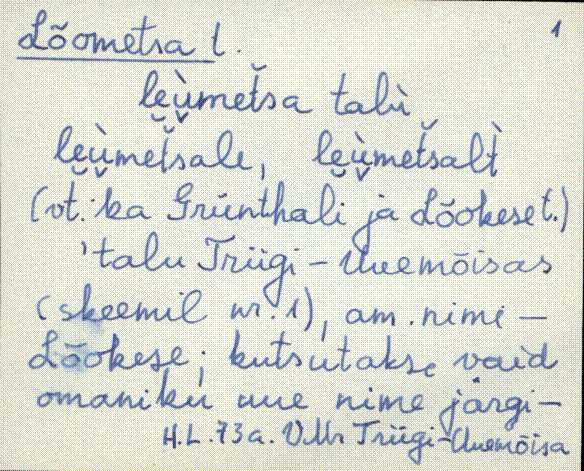 Lõometsa t.
1
leùmetsa talù
leùmetsale, leùmetsalt
(vt. ka Grünthali ja Lõokese t.)
'talu Triigi-Uuemõisas
(skeemil nr. 1), am. nimi -
Lõokese; kutsutakse vaid
omaniku uue nime järgi -
H.L. 73a. VMr Triigi-Uuemõisa